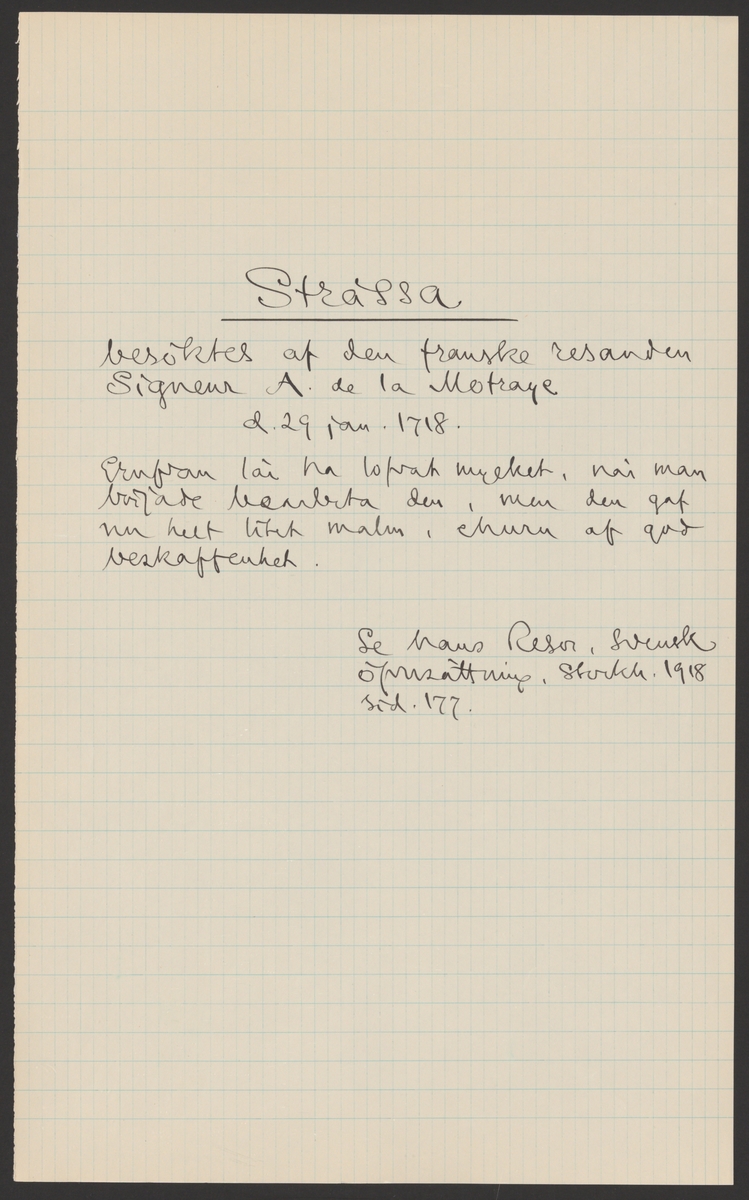 Stråssa
besöktes af den franske resanden
Signeur A. de la Motraye
d. 29 jan. 1718.
Grufvan lär ha lofvat mycket, när man
började bearbeta den, men den gaf
nu helt litet malm, churu af god
beskaffenhet.
Se hans Resor, Svensk
öfversättning, Stockh. 1918
sid. 177.